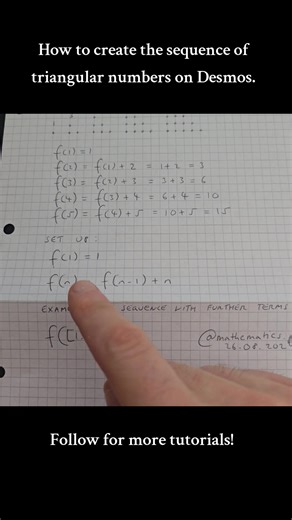 How to create the sequence of
triangular numbers on Desmos.
f(1) = 1
f(2) = f(1) + 2 = 1 + 2 = 3
f(3) = f(2) + 3 = 3 + 3 = 6
f(4) = f(3) + 4 = 6 + 4 = 10
f(5) = f(4) + 5 = 10 + 5 = 15
SET UP:
f(1) = 1
f(n) f(n-1) + n
SEQUENCE WITH FURTHER TERMS
f([1
@mathematics
26.08.202
Follow for more tutorials!